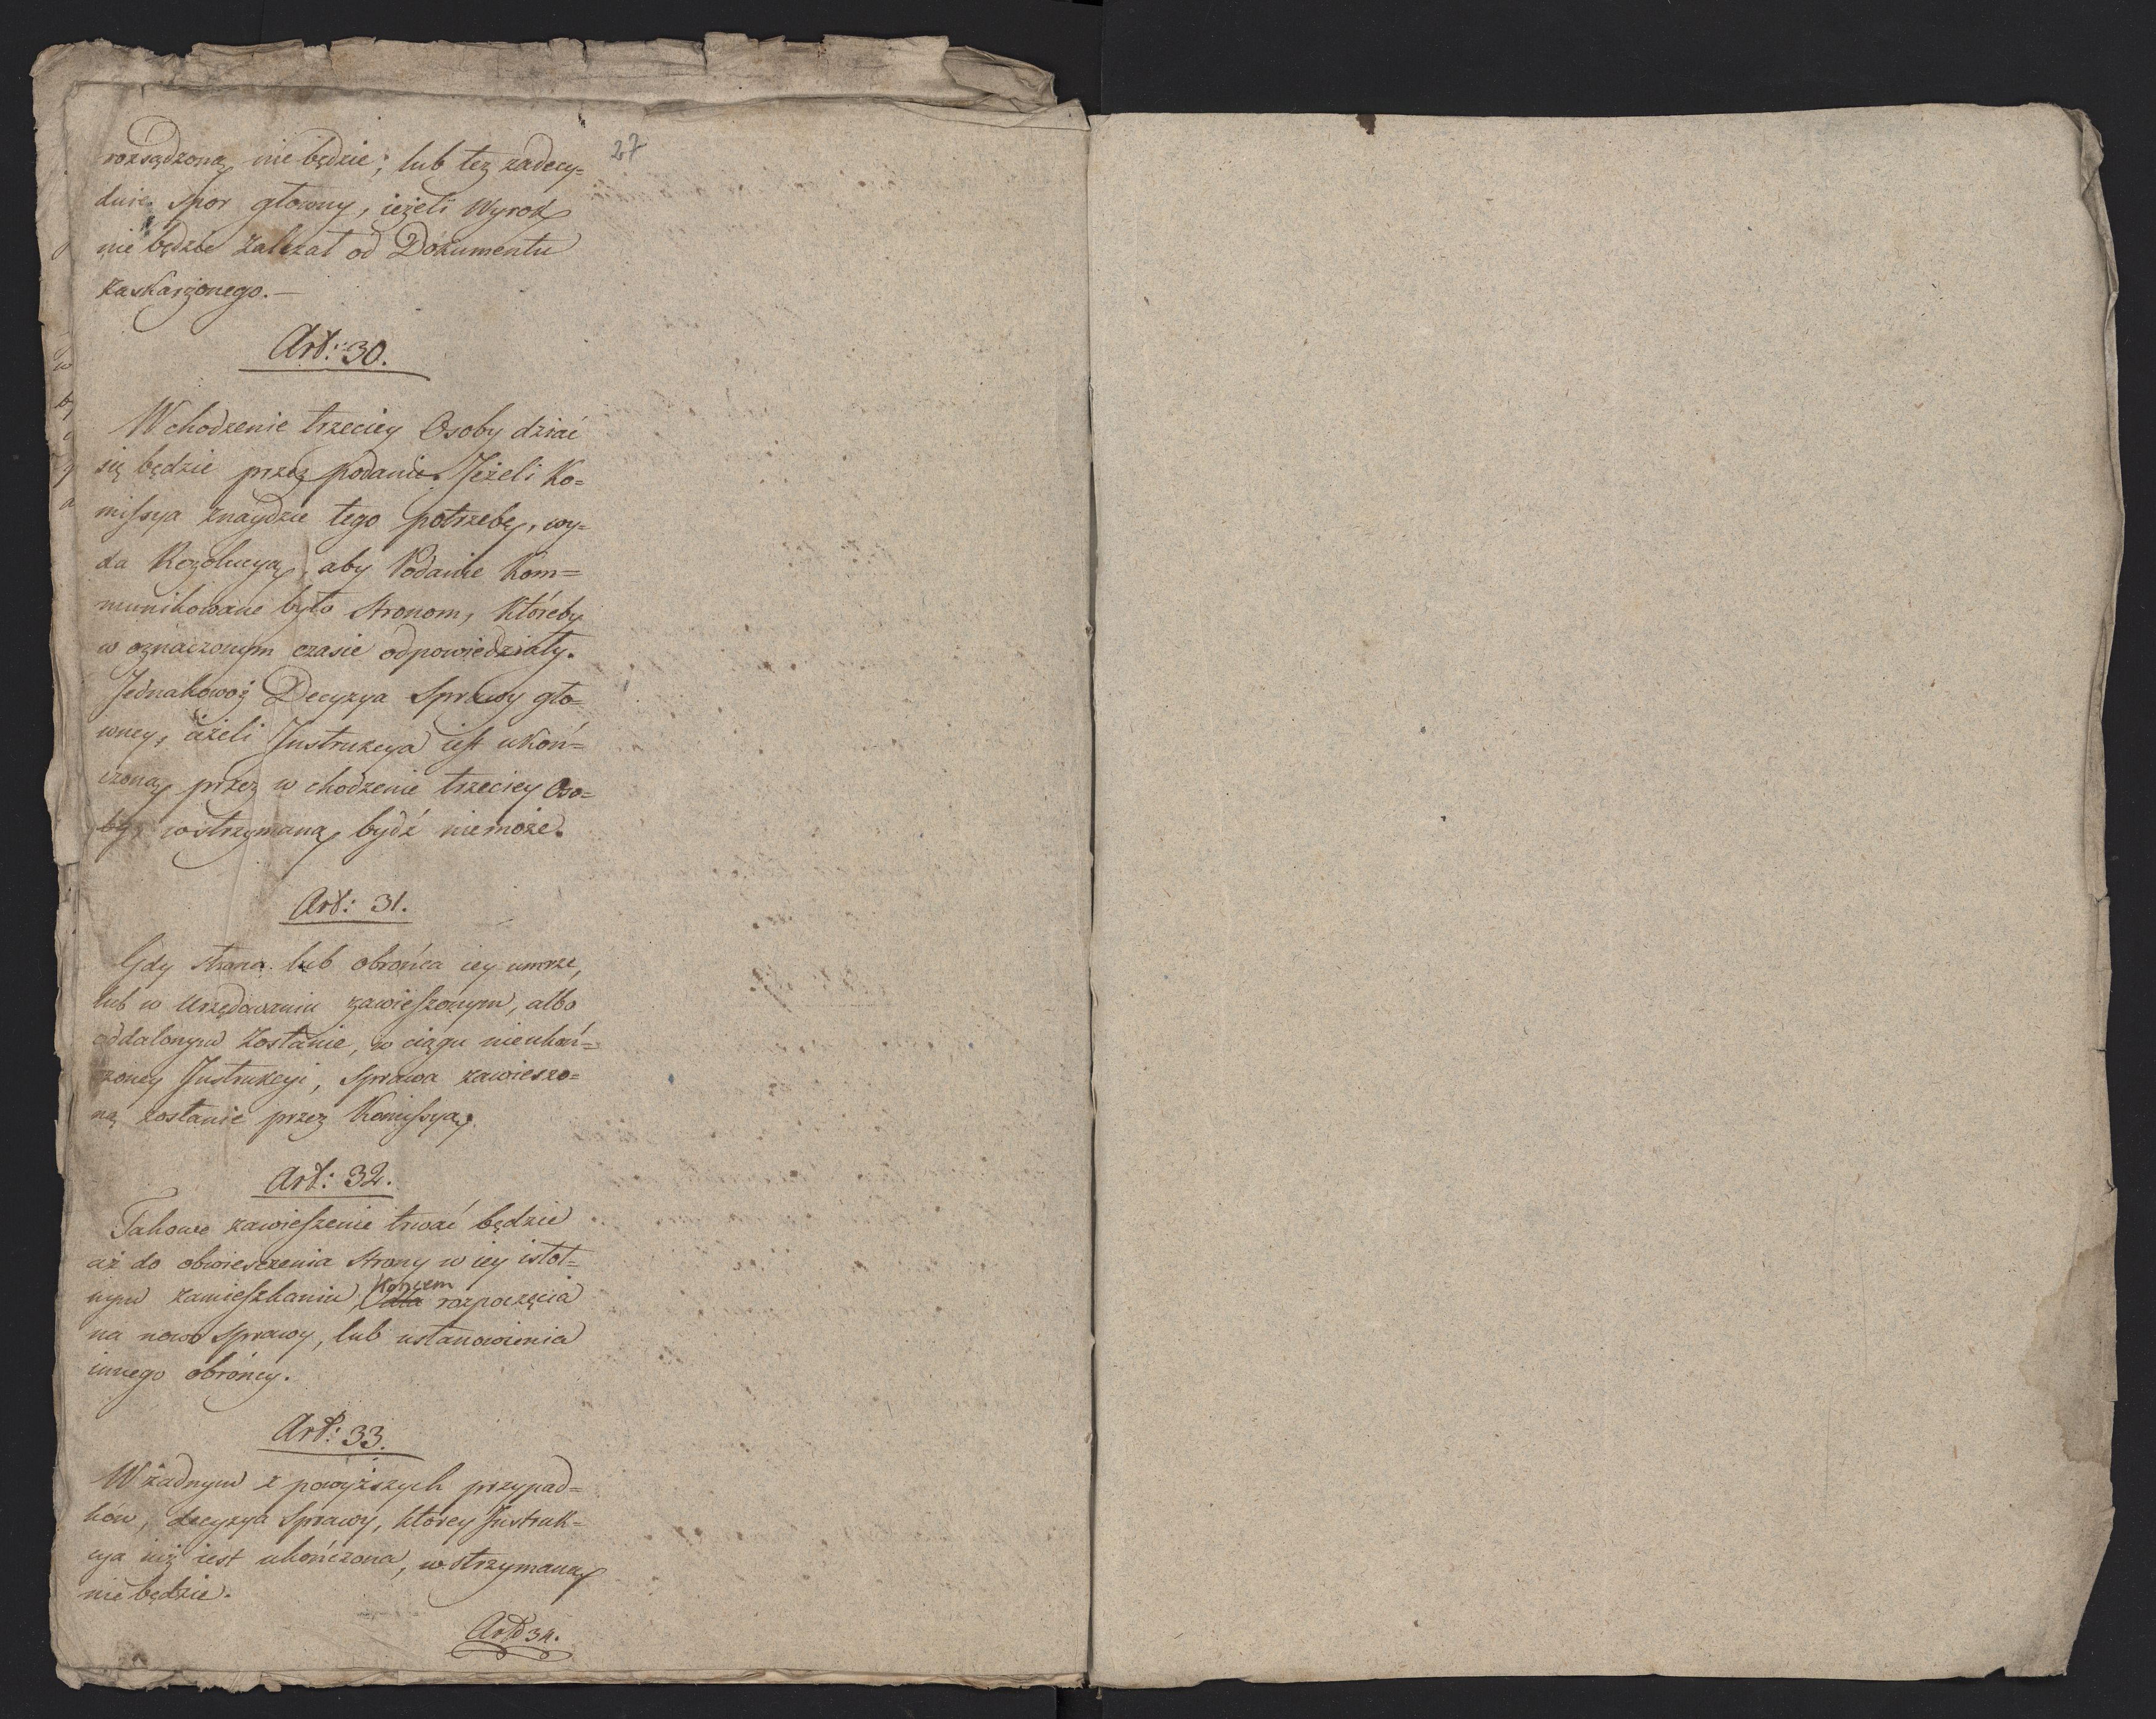 27
rozsądzoną nie będzie; lub też zadecy=
duie spor głowny, ieżeli Wyrok
nie będzie zależał od Dokumentu
zaskarżonego.—
Art: 30.
Wchodzenie trzeciey Osoby dziać
się będzie przez podanie. Jeżeli Ko=
missya znaydzie tego potrzebę, wy=
da Rezolucyą, aby Podanie Kom=
munikowane było stronom, któreby
w oznaczonym czasie odpowiedziały.
Jednakowoż Decyzya Sprawy gło=
wney, ieżeli Instrukcya iest ukoń=
czoną, przez wchodzenie trzeciey Oso=
by, wstrzymaną bydź niemoże.
Art: 31.
Gdy strona lub obrońca iey umrze,
lub w Urzędowaniu zawieszonym, albo
oddalonym zostanie, w ciągu nieukoń=
czoney Instrukcyi, Sprawa zawieszo=
ną zostanie przez Komissyą.
Art: 32.
Takowe zawieszenie trwać będzie
aż do obwieszczenia strony w iey istot=
nym zamieszkaniu, końcem dla rozpoczęcia
na nowo Sprawy, lub ustanowienia
innego obrońcy.
Art: 33.
W żadnym z powyższych przypad=
ków, decyzya Sprawy, którey Instruk=
cya iuż iest ukończona, wstrzymaną
nie będzie.
Art 34.